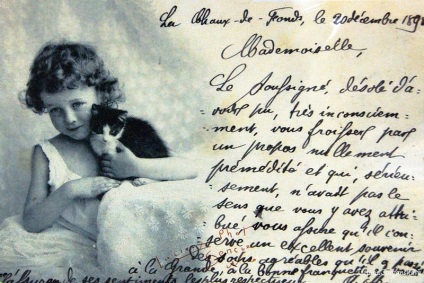 La Chaux-de-Fonds, le 20 décembre 189
Mademoiselle,
Le Soussigné, désolé d'a-
voir pu, très inconsciem-
ment, vous froisser par
un propos nullement
prémédité et qui, sérieu-
sement, n'avait pas le
sens que vous y avez attri-
bué, vous assure qu'il con-
serve un excellent souvenir
des jours agréables qu'il a passés
à la Grande, à la bonne franquette,
l'assurance de ses sentiments les plus respectueux